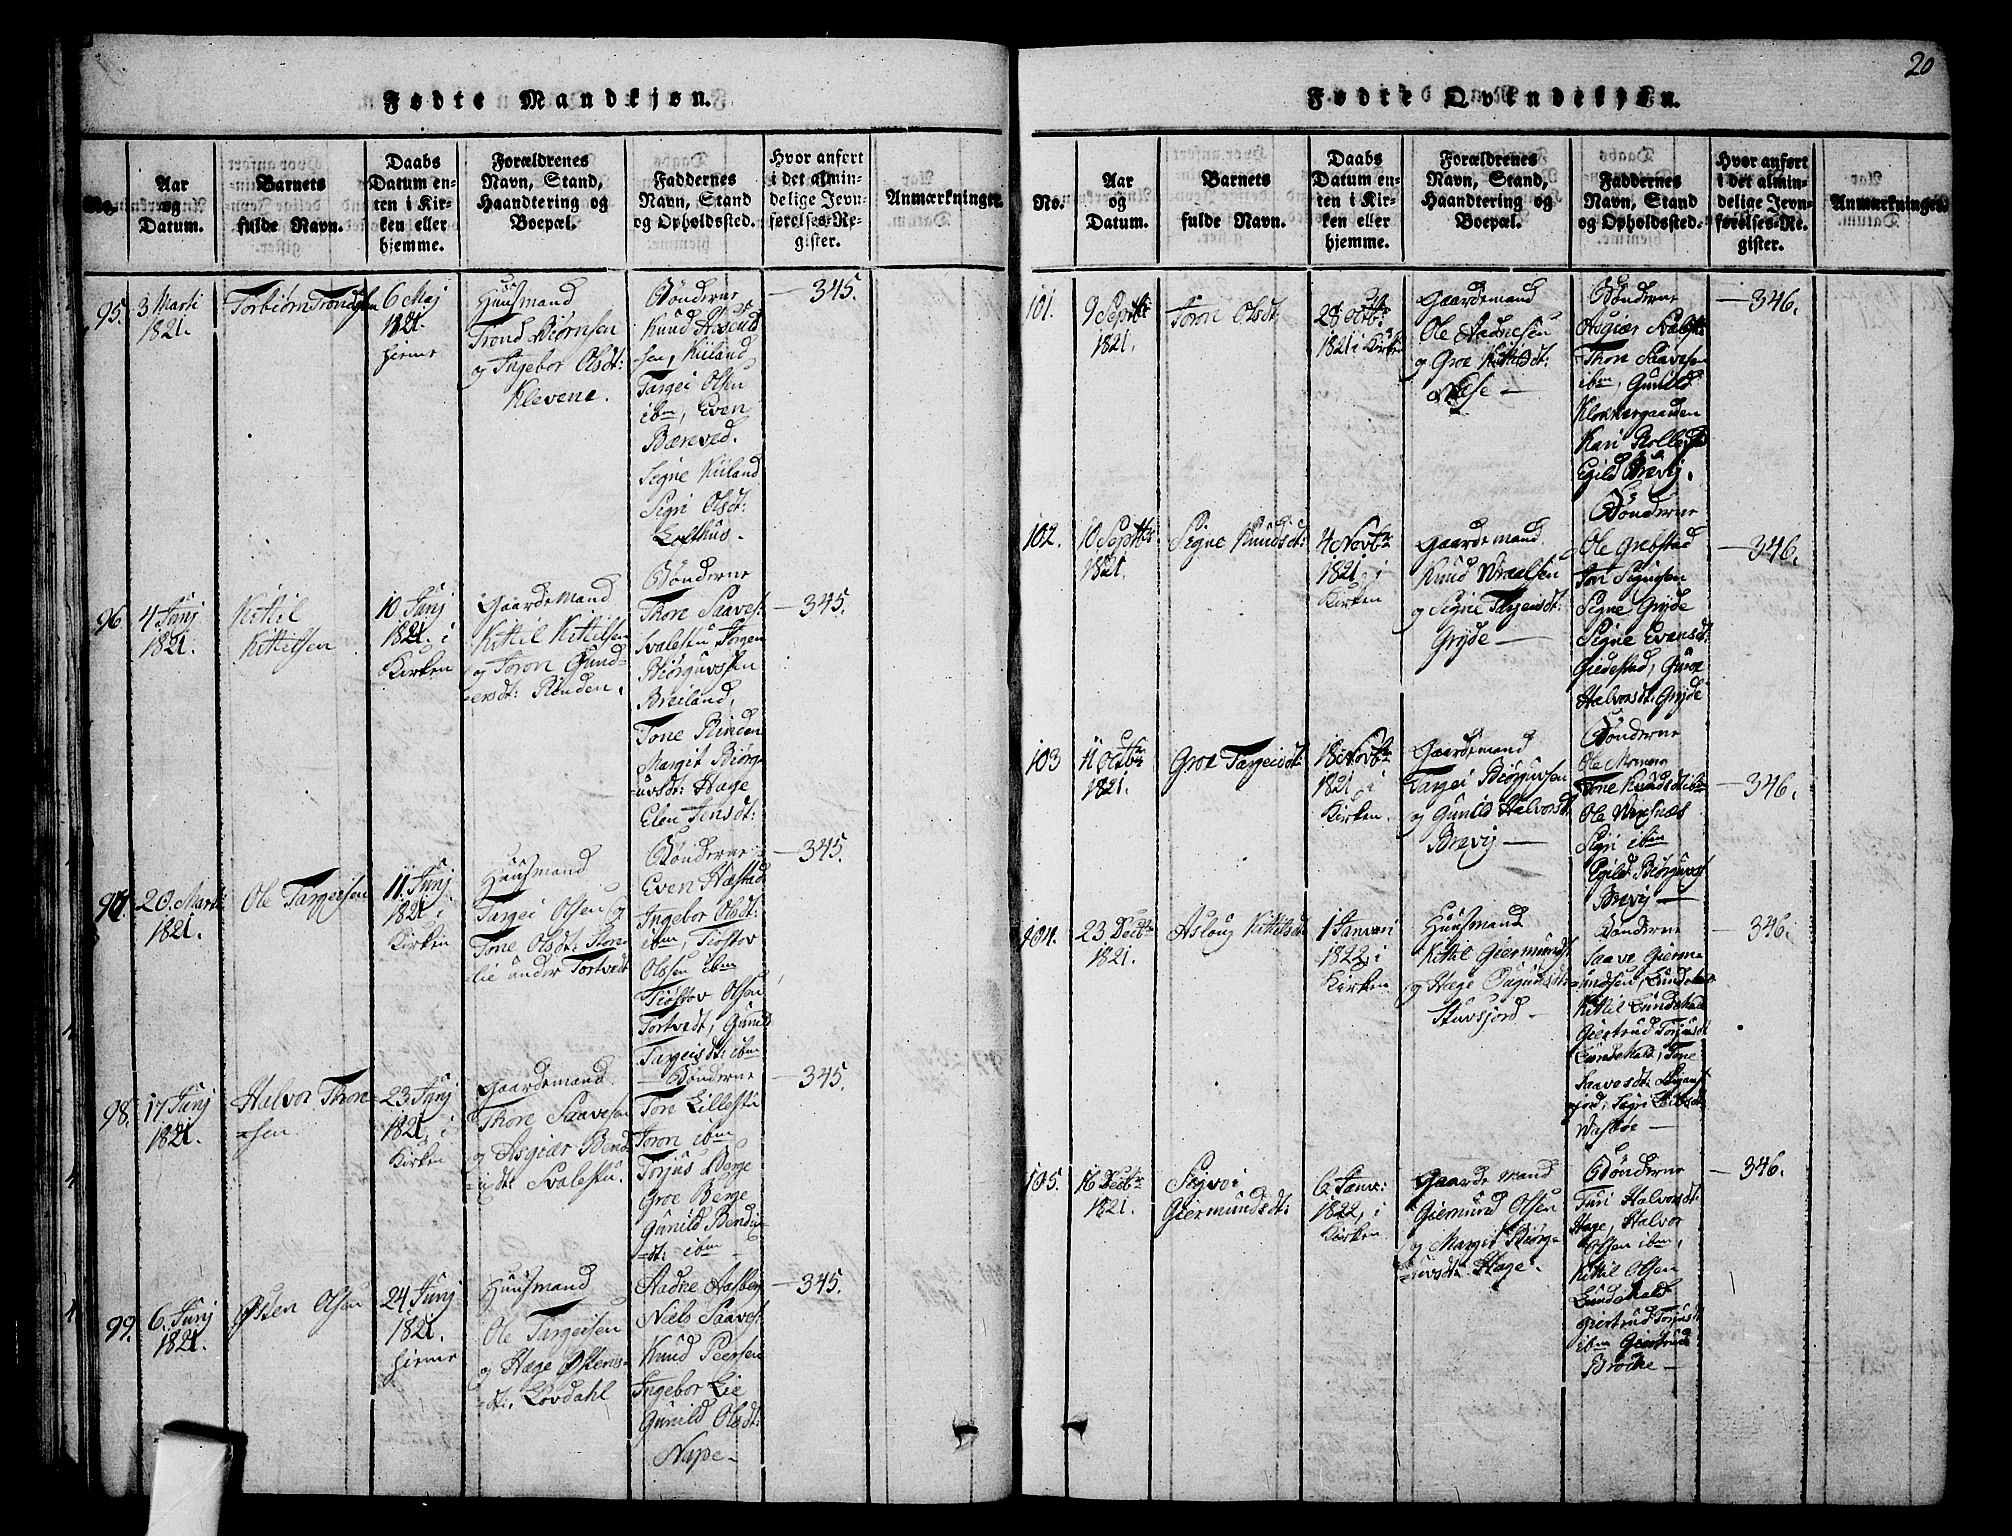 20
Fødte Mandkjøn.
No.
Aar
og
Datum.
Barnets
fulde Navn.
Daabs
Datum en-
ten i Kir-
ken eller
hjemme.
Forældrenes
Navn, Stand,
Haandtering og
Boepæl.
Faddernes
Navn, Stand
og Opholdssted.
Hvor anført
i det almin-
delige Jevn-
førelses-Re-
gister.
Anmærkninger.
95.
3 Marti
1821.
Torbiørn Trondsen
6 Maj
1821.
hieme
Huusmand
Trond Biørnsen
og Ingebor Olsdt:
Klevene.
Bønderne
Knud
sen, Kiiland
Targei Olsen
ibm, Even
Bæreved.
Signe Kiiland
Sigri Olsdt:
Lofthus.
345.
96
4 Junj
1821.
Kittil
Kittelsen
10 Junj
1821. i
Kirken
Gaardemand
Kittil Kittilsen
og Toron Gund-
ersdt: Rinden.
Bønderne
Thore Saaves:
Svalestu Jørgen
Biørguvsen
Breiland,
Tone Rinden
Margit Biørg-
uvsdt: Hage
Elen Jensdt:
345.
97.
20. Marti
1821.
Ole Targeisen
11. Junj
1821 i
Kirken
Huusmand
Targei Olsen og
Tone Olsdt:
lie under Tortvedt
Bønderne
Even Hæstad
Ingebor Olsdt:
ibm, Tiøstov
Olssen ibm
Tiøstov Olsen
Tortvedt, Gunild
Targeisdt: ibm
345.
98.
17 Junj
1821.
Halvor Thore-
sen.
23 Junj
1821, i
Kirken
Gaardemand
Thore Saavesen
og Asgiær Bend-
ixdt Svalestu.
Bønderne
Tore Lillestu
Toron ibm
Torjus Berge
Groe Berge
Gunild Bendix-
dt: ibm
345.
99.
6. Junj
1821.
Østen Olsen
24 Junj
1821.
hieme
Huusmand
Ole Targeisen
og Hæge Østens-
dt: Lovdahl
Aadne
Niels Saaves:
Knud Peersen
Ingebor Lie
Gunild Olsdt:
Nape
345.
Fødte Qvindekjøn.
No.
Aar
og
Datum.
Barnets
fulde Navn.
Daabs
Datum en-
ten i Kir-
ken eller
hjemme.
Forældrenes
Navn, Stand,
Haandtering og
Boepæl.
Faddernes
Navn, Stand
og Opholdssted.
Hvor anført
i det almin-
delige Jevn-
førelses-Re-
gister.
Anmærkninger.
101.
9 Septbr
1821.
Toron Olsdt
28 Octbr:
1821 i Kirken
Gaardemand
Ole Aadnesen
og Groe Kittilsdt:
Bønderne
Asgiær
Thore Saavesen
ibm, Gunild
Klokkergaarden
Kari
Egild Brevig.
346.
102.
10 Septbr
1821.
Signe Knudsdt:
4 Novbr
1821, i
Kirken
Gaardemand
Knud Wraalsen
og Signe Targeisdt:
Gryde
Bønderne
Ole Grebstad
Signe Gryde
Signe Evensdt:
Guroe
Halvorsdt: Gryde
346.
103
11 Octbr
1821.
Groe Targeisdt:
18 Novbr
1821, i
Kirken.
Gaardemand
Targei Biørguvsen
og Gunild Halvorsdt
Brevig
Bønderne
Ole
Tone Knudsdt ibm
Ole
Sigri ibm
Egild Biørguvs
Brevig
346.
104.
23. Decbr
1821.
Asloug Kittilsdt:
1 Januari
1822, i
Kirken
Huusmand
Kittil Giermunds:
og Hæge
Stuvsjord
Bønderne
Saave Gierm-
undsen, Lundekald
Kittil Lundekald
Giertrud Torjusdt
Lundekald, Tone
Saavesdt:
jord, Sigri
346.
105.
16 Decbr
1821.
Giermundsdt:
6. Janv:
1822, i
Kirken
Gaardemand
Giermund Olsen
og Margit Biørg-
uvsdt: Hage
Bønderne
Juri Halvorsdt:
Hage, Halvor
Olsen ibm,
Kittil Olsen
Lundekald
Giertrud Torjusdt
ibm Giertrud
Broche
346.